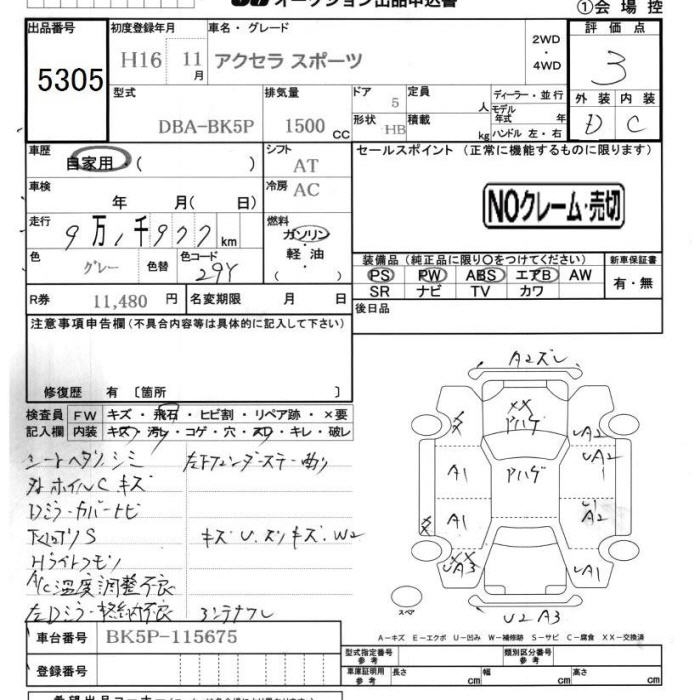 オークション出品申込書
①会場控
出品番号 初度登録年月 車名・グレード 評価点
5305 H16 11月 アクセラ スポーツ 2WD・4WD 3
型式 排気量 ドア 定員 ディーラー・並行 外装 内装
DBA-BK5P 1500cc 5 人 モデル年式 年 D C
形状 HB 積載 kg ハンドル 左・右
車歴 自家用・( ) シフト AT セールスポイント (正常に機能するものに限ります)
車検 年 月( 日) 冷房 AC
NOクレーム・売切
走行 9万1千977km 燃料 ガソリン・軽油・( )
色 グレー 色替 色コード 29Y
装備品 (純正品に限り○をつけてください) 新車保証書
PS PW ABS エアB AW 有・無
SR ナビ TV カワ
R券 11,480円 名変期限 月 日 後日品
注意事項申告欄(不具合内容等は具体的に記入して下さい)
修復歴 有 〔箇所 〕
検査員記入欄 FW キズ・飛石・ヒビ割・リペア跡・×要
内装 キズ・汚レ・コゲ・穴・スレ・キレ・破レ
シートヘタリ シミ
ホイルC キズ
Dミラーカバートビ
下回りS キズU.スリキズ.W2
Hライトクモリ
A/C温度調整不良
左Dミラー格納不良 コンテナクレ
A2スレ
XX
アハゲ
アハゲ
A1
A1
UA3
UA2
UA2
A2
UA1
U2A3
スペア
A-キズ E-エクボ U-凹み W-補修跡 S-サビ C-腐食 XX-交換済
車台番号 BK5P-115675
型式指定番号 参考 類別区分番号 参考
登録番号
車庫証明用参考 長さ cm 幅 cm 高さ cm